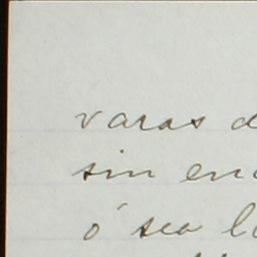 varas d
sin enc
ó sea l